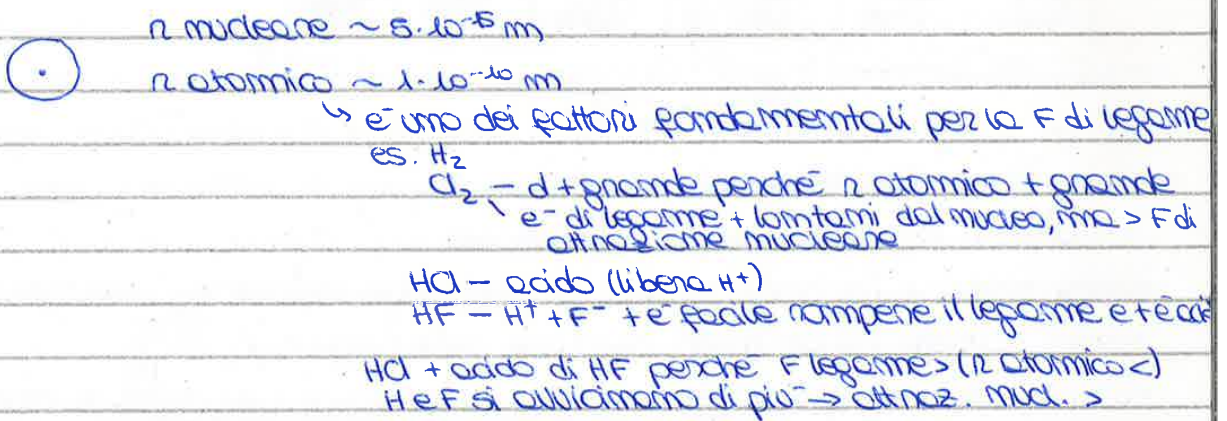 r nucleare ~ 5·10⁻¹⁵ m
r atomico ~ 1·10⁻¹⁰ m
↳ è uno dei fattori fondamentali per la F di legame
es. H₂
Cl₂ – d + grande perché r atomico + grande
e⁻ di legame + lontani dal nucleo, ma > F di
attrazione nucleare
HCl – acido (libera H⁺)
HF – H⁺ + F⁻ + è facile rompere il legame e + è
HCl + acido di HF perché F legame > (r atomico <)
H e F si avvicinano di più → attraz. nucl. >